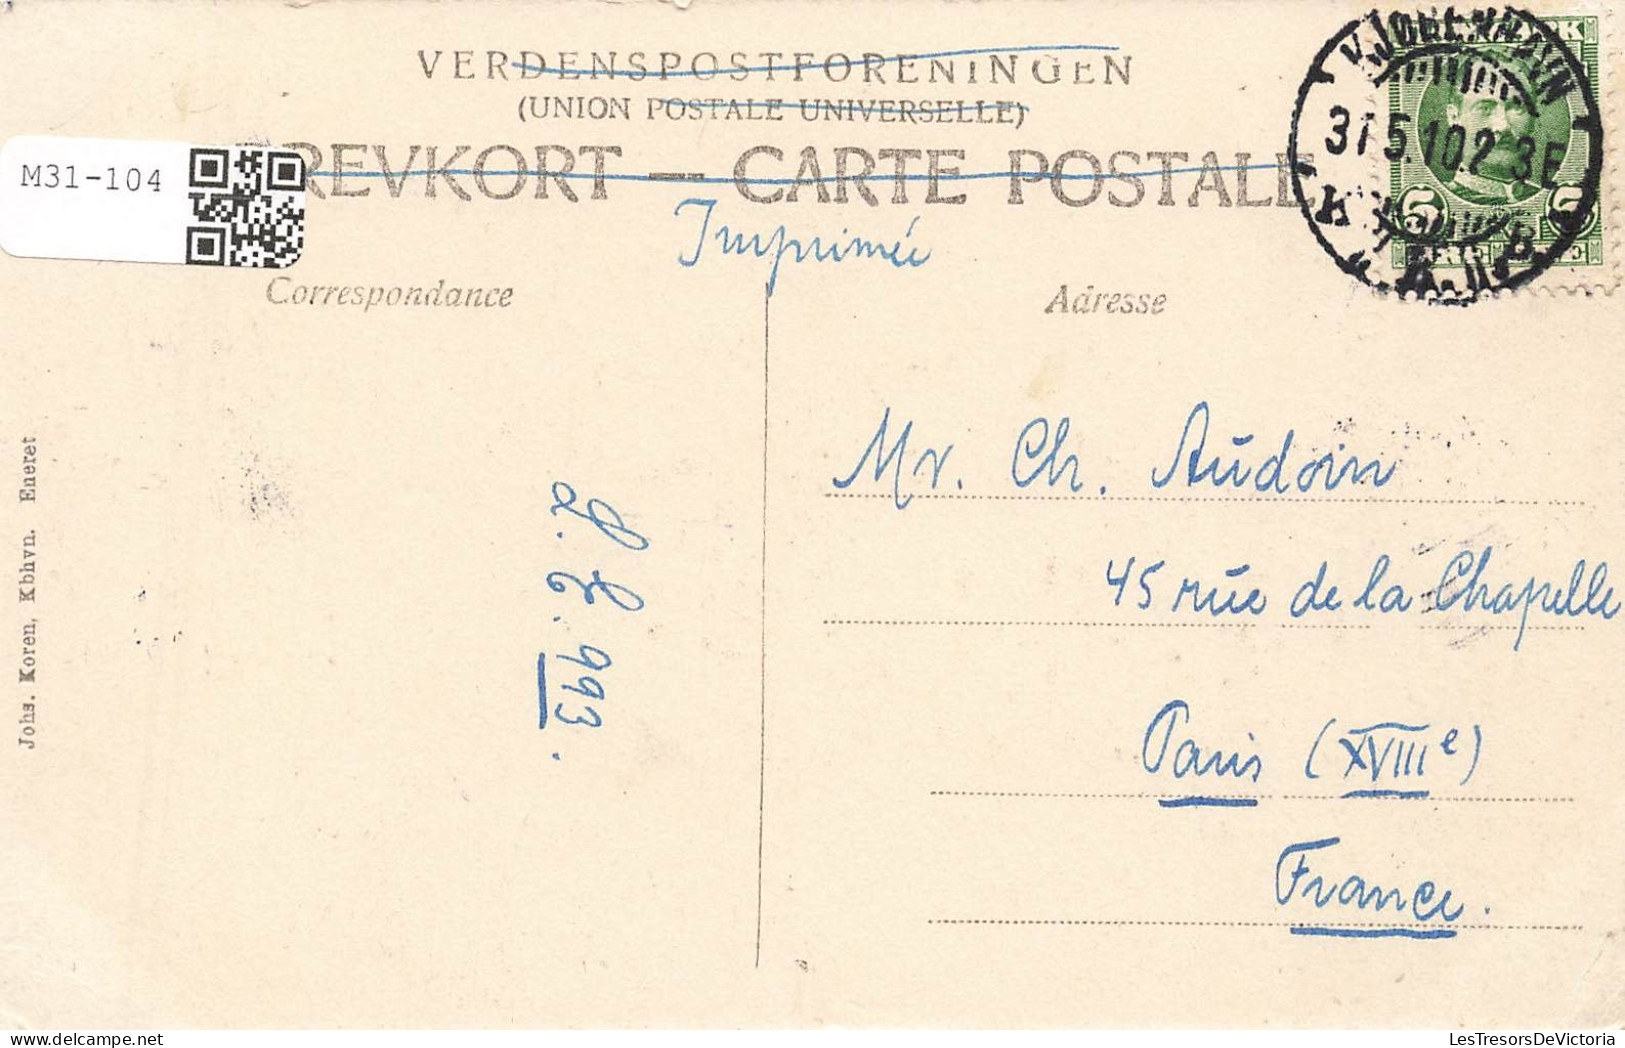 VERDENSPOSTFORENINGEN
(UNION POSTALE UNIVERSELLE)
BREVKORT — CARTE POSTALE
M31-104
KJØBENHAVN
31 5.10. 2-3E
K
5 5
Imprimée
Correspondance
Adresse
Mr. Ch. Audoin
45 rue de la Chapelle
Paris (XVIIIe)
France.
L. C. 993.
Johs. Koren, Kbhvn. Eneret
LesTresorsDeVictoria